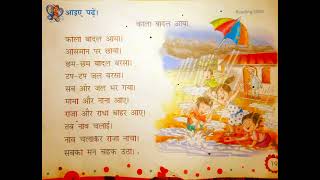 आइए पढ़ें।
Reading Skills
काला बादल आया
काला बादल आया।
आसमान पर छाया।
छम-छम बादल बरसा।
टप-टप जल बरसा।
सब ओर जल भर गया।
मामा और नाना आए।
राजा और राधा बाहर आए।
तब नाव चलाई।
नाव चलाकर राजा नाचा।
सबका मन चहक उठा।
19